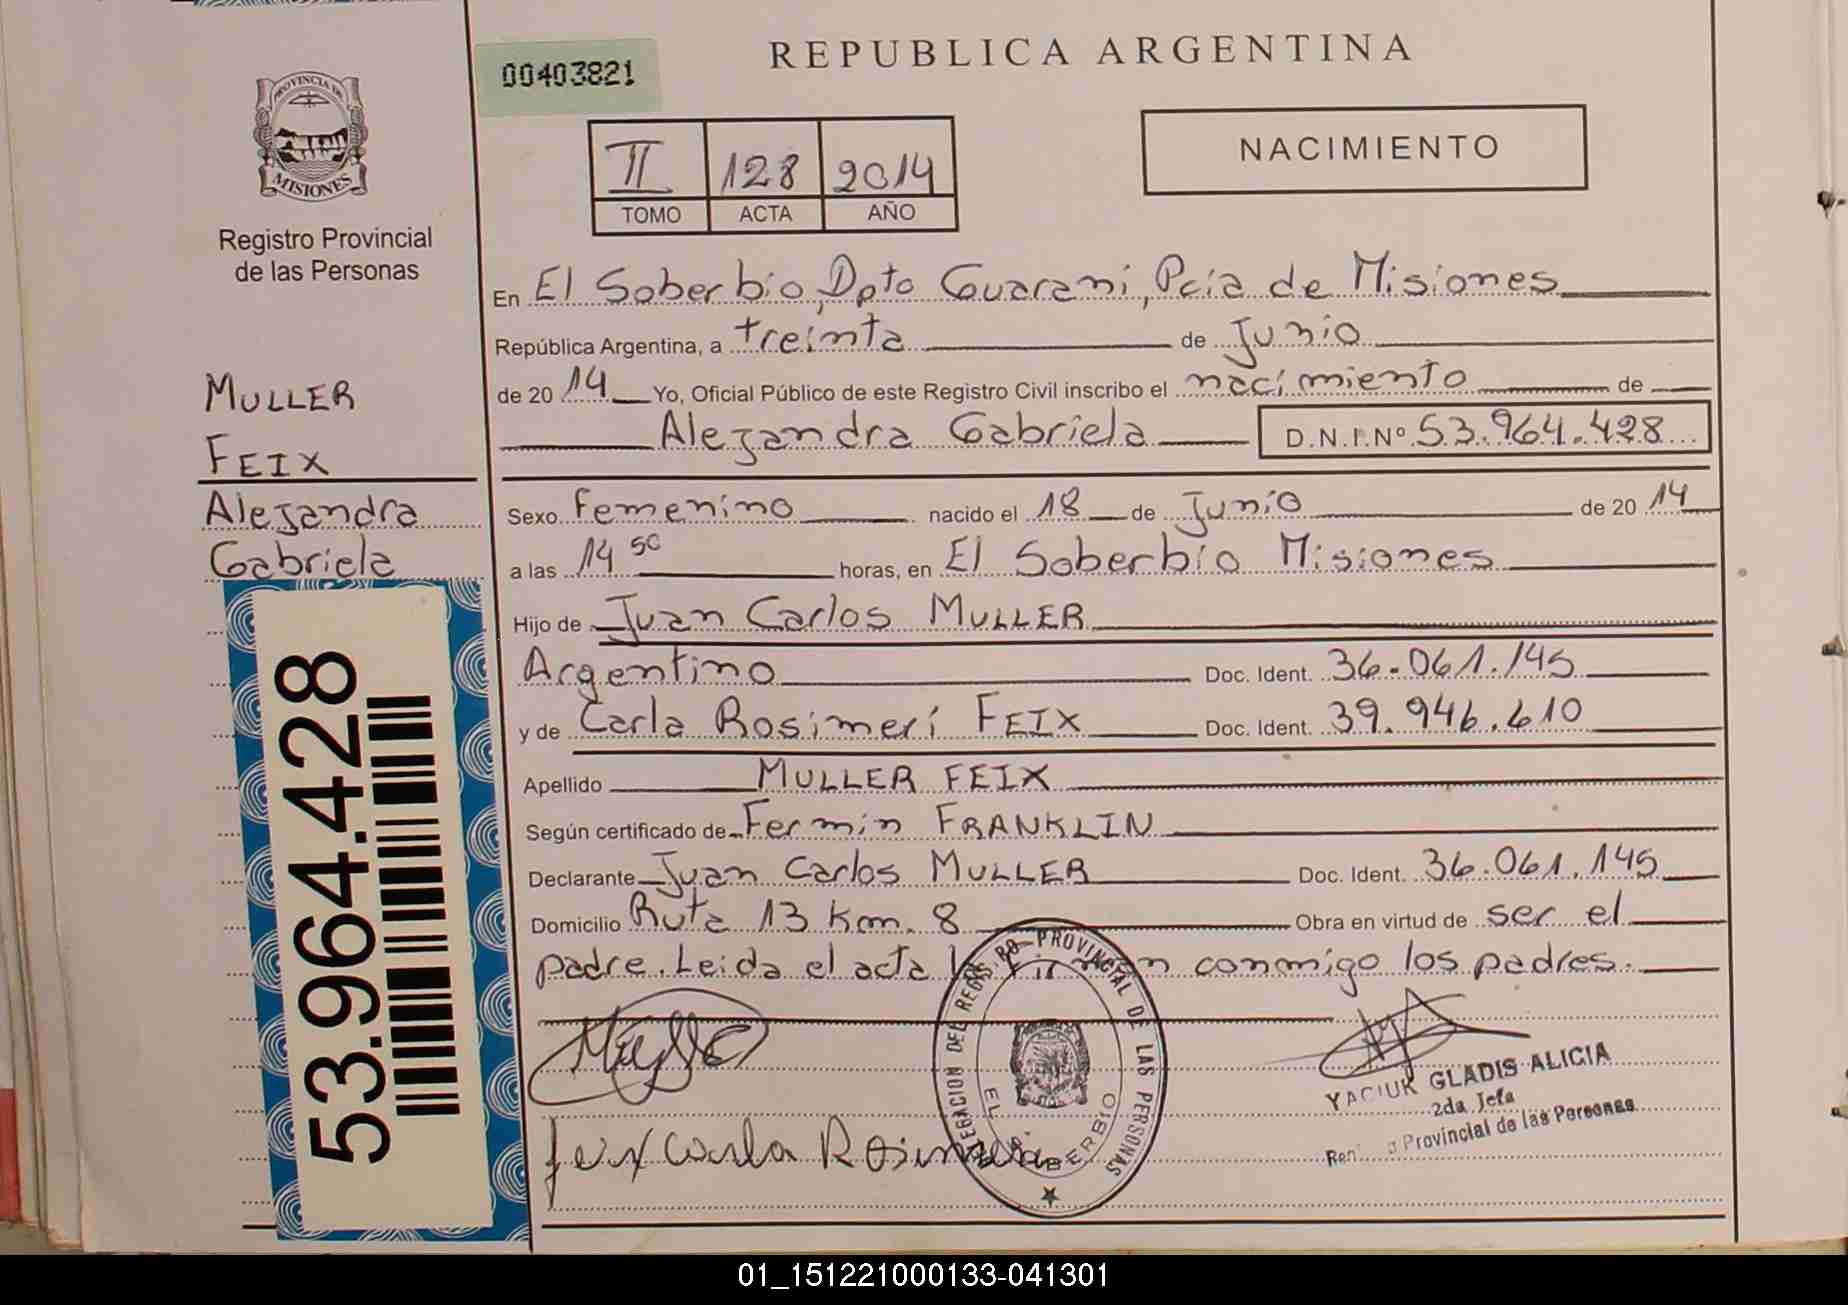 REPUBLICA ARGENTINA
00403821
PROVINCIA DE
MISIONES
Registro Provincial
de las Personas
II 128 2014
TOMO ACTA AÑO
NACIMIENTO
En El Soberbio, Dpto Guarani, Pcia de Misiones
República Argentina, a treinta de Junio
de 20 14 Yo, Oficial Público de este Registro Civil inscribo el nacimiento de
Alejandra Gabriela D.N.I.Nº 53.964.428
MULLER
FEIX
Alejandra
Gabriela
53.964.428
Sexo Femenino nacido el 18 de Junio de 20 14
a las 14 50 horas, en El Soberbio Misiones
Hijo de Juan Carlos MULLER
Argentino Doc. Ident. 36.061.145
y de Carla Rosimeri FEIX Doc. Ident. 39.946.610
Apellido MULLER FEIX
Según certificado de Fermin FRANKLIN
Declarante Juan Carlos MULLER Doc. Ident. 36.061.145
Domicilio Ruta 13 Km. 8 Obra en virtud de ser el
padre. Leida el acta conmigo los padres.
DELEGACION DEL REGISTRO PROVINCIAL DE LAS PERSONAS
EL SOBERBIO
Feix Carla Rosimeri
YACIUK GLADIS ALICIA
2da Jefa
Provincial de las Personas
01_151221000133-041301